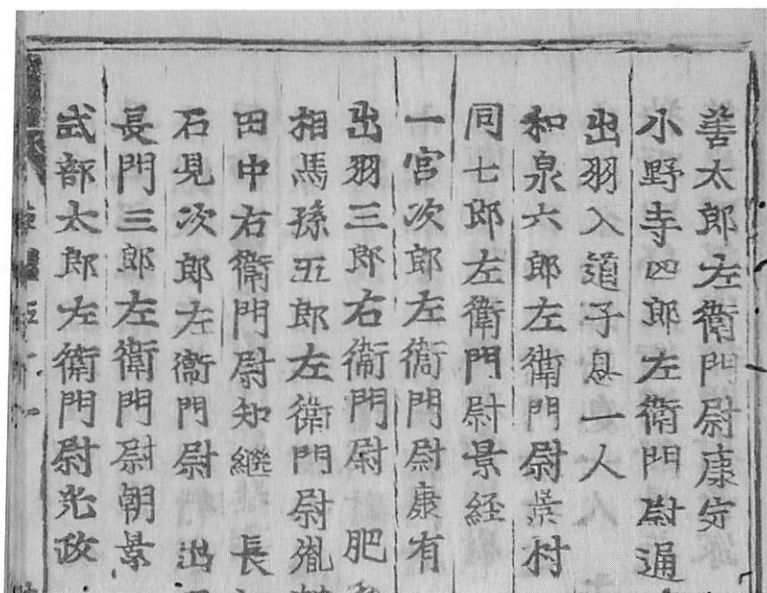 善太郎左衛門尉康定
小野寺四郎左衛門尉通
出羽入道子息一人
和泉六郎左衛門尉景村
同七郎左衛門尉景経
一宮次郎左衛門尉康有
出羽三郎右衛門尉 肥
相馬孫五郎左衛門尉胤
田中右衛門尉知継 長
石見次郎左衛門尉 出
長門三郎左衛門尉朝景
式部太郎左衛門尉光政